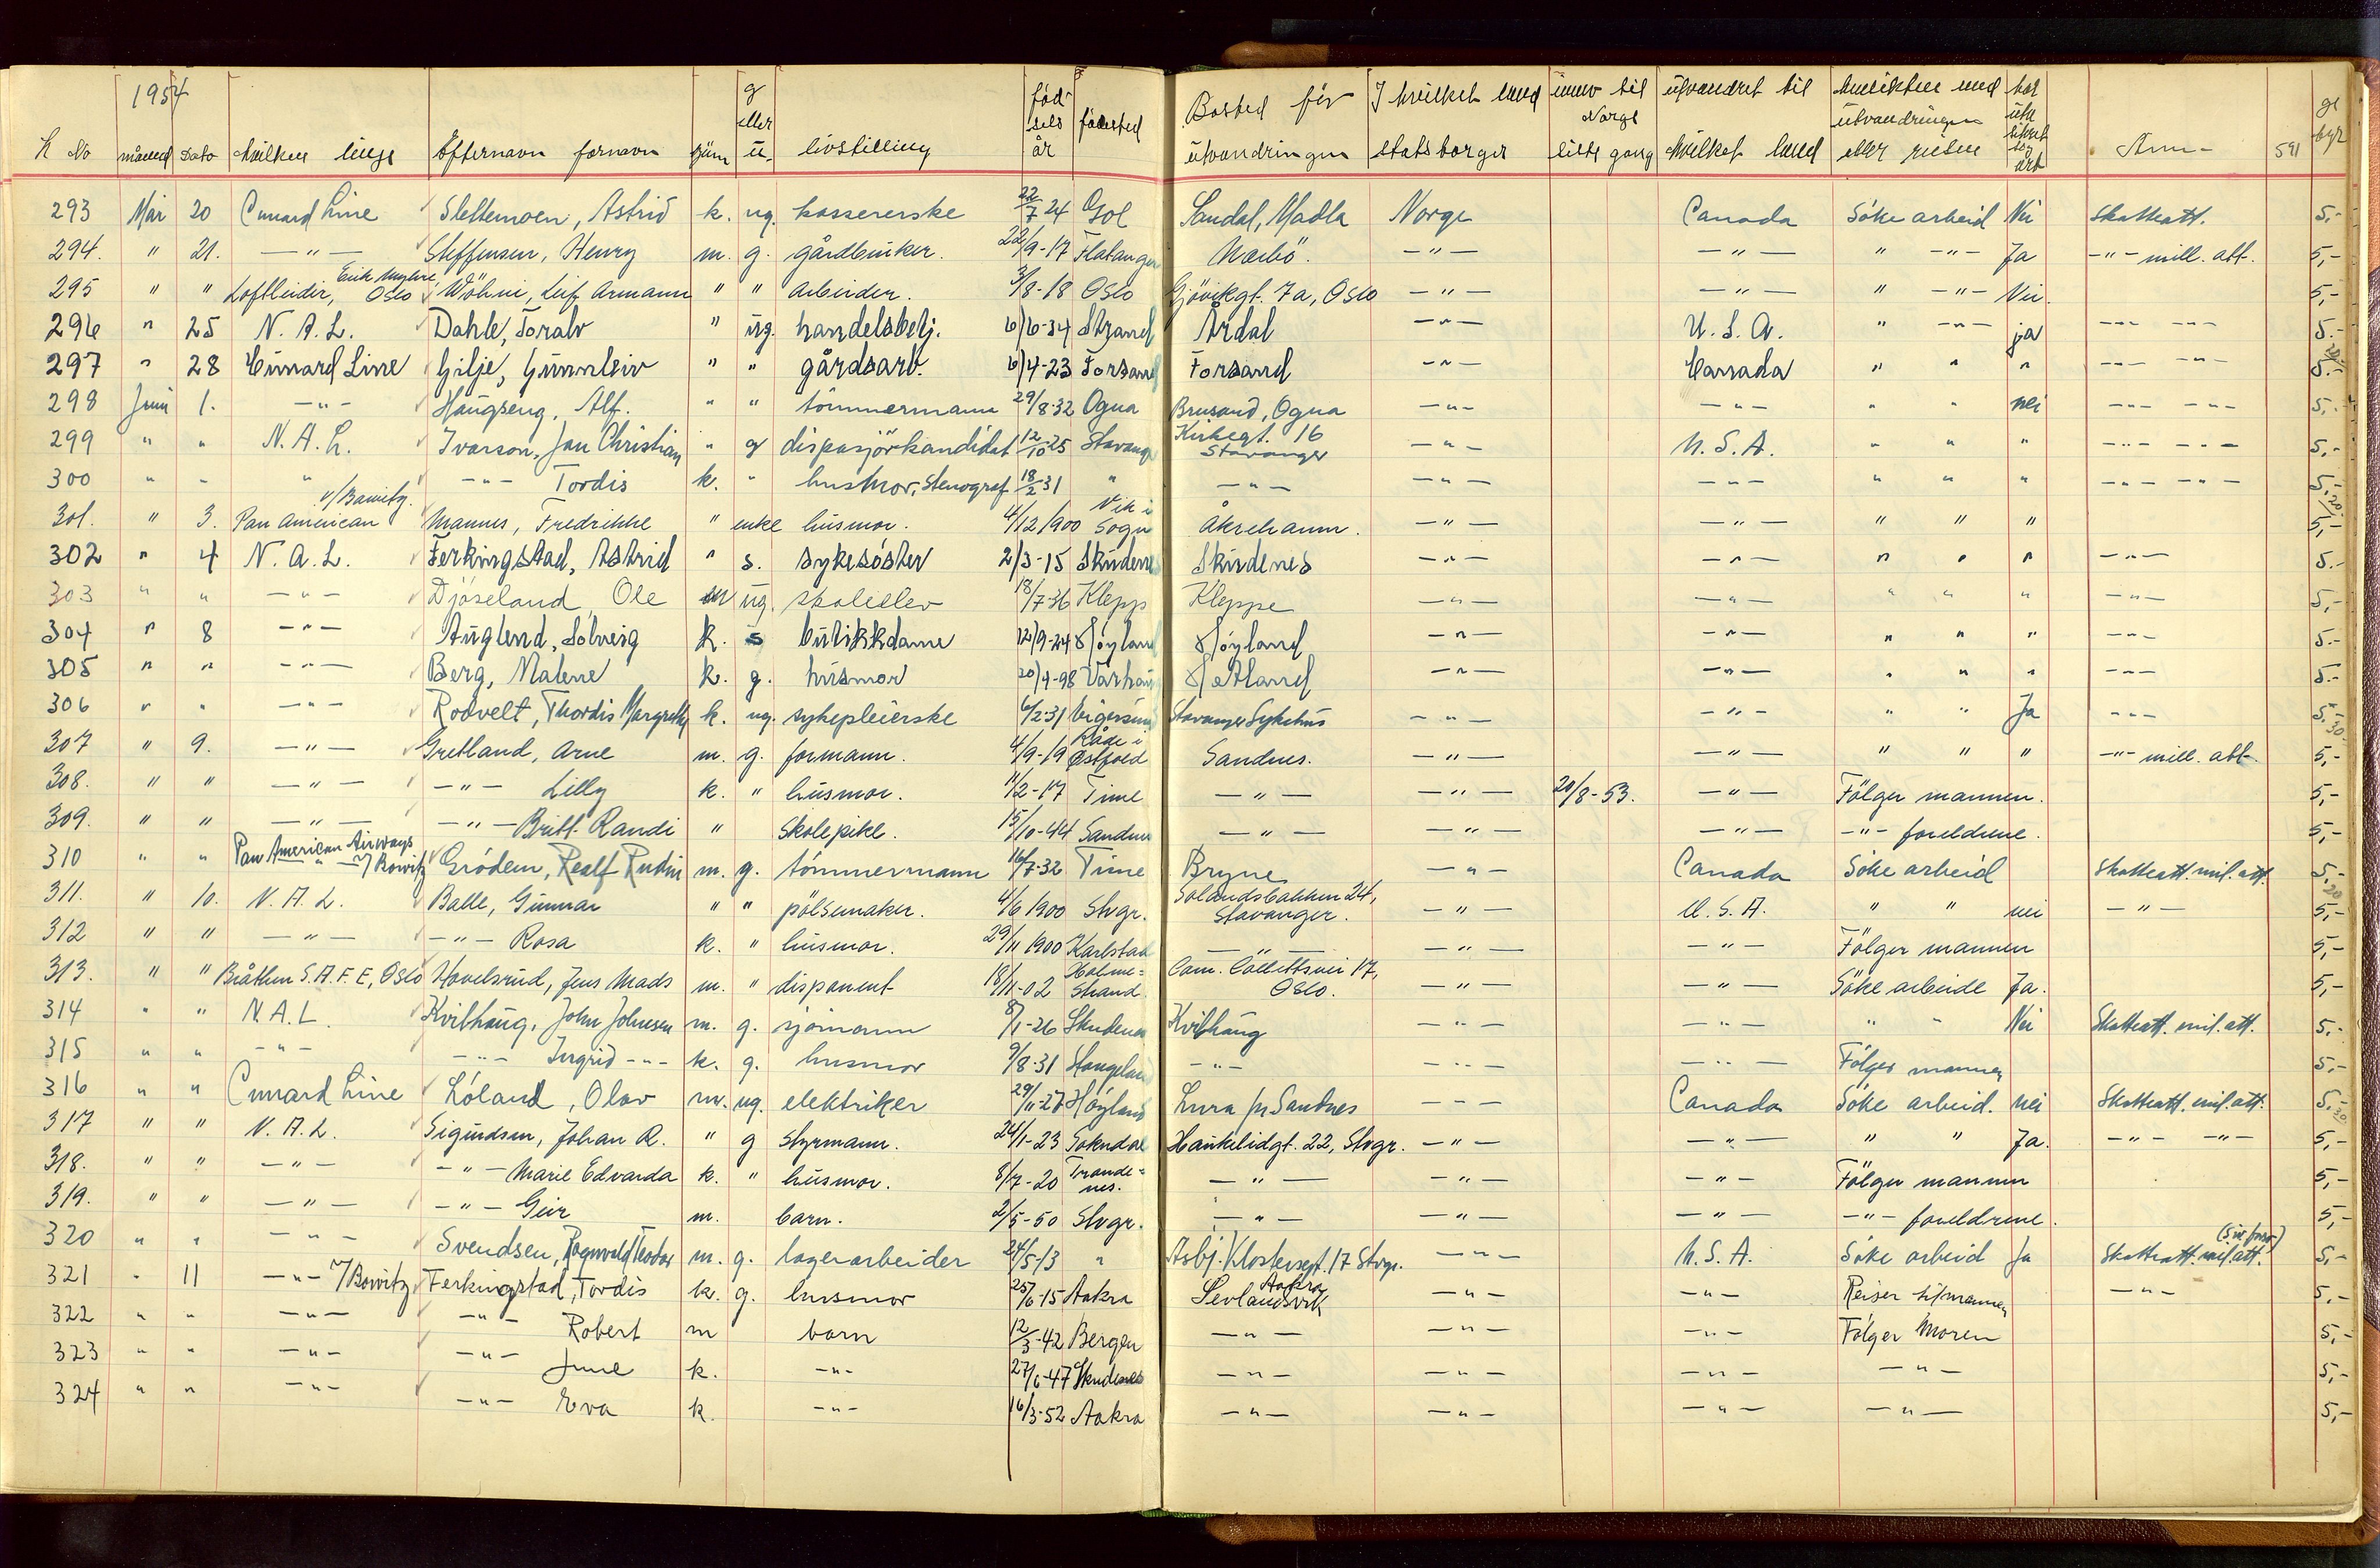 1954
K No måned Dato hvilken linje Efternavn fornavn kjøn g eller u. livstilling fødsels år fødested Bosted før utvandringen I hvilket land statsborger innv til Norge siste gang utvandret til hvilket land Hensikten med utvandringen eller reisen Anm- 591 ge byr
293 Mai 20 Cunard Line Slettemoen, Astrid k. ug. kassererske 22/7 24 Gol Sandal, Madla Norge Canada Söke arbeid Nei Skatteatt. 5,-
294. " 21. -"- Steffensen, Henry m. g. gårdbruker. 22/9-17 Flatanger Maebö. -"- -"- " -"- Ja -"- mill. att. 5,-
295 " " Loftleidir, Oslo Wöhni, Leif Armann " " Arbeider. 3/8-18 Oslo Gjövikgt. 7a, Oslo -"- -"- " -"- Nei. 5,-
296 " 25 N.A.L. Dahle, Toralv " ug. handelsbetj. 6/6-34 Strand Årdal -"- U.S.A. " -"- ja -"- -"- 5.-
297 " 28 Cunard Line Gilje, Gunnleiv " " gårdsarb. 6/4-23 Forsand Forsand -"- Canada " " " -"- -"- 5.-
298 Juni 1. -"- Haugseng, Alf. " " tömmermann 29/8-32 Ogna Brusand, Ogna -"- -"- " " nei -"- -"- 5,-
299 " " N.A.L. Ivarson, Jan Christian " g dispasjörkandidat 12/10-25 Stavanger Kirkegt. 16 Stavanger -"- U.S.A. " " " -"- -"- 5,-
300 " " " -"- Tordis k. " husmor, Stenograf 18/2 31 " -"- -"- -"- " " " -"- -"- 5,-
301. " 3. Pan American v/Bowitz. Mannes, Fredrikke " enke husmor. 4/12 1900 Vik i Sogn Åkrehamn. -"- -"- " " " 5,-
302 " 4 N.A.L. Ferkingstad, Astrid " s. sykesöster 2/3-15 Skudenes Skudenes -"- -"- " " " -"- 5.-
303 " " -"- Djöseland, Ole m ug. skoleelev 18/7 36 Klepp Kleppe -"- -"- " " " -"- 5,-
304 " 8 -"- Auglend, Solveig k. s butikkdame 12/9-24 Höyland Höyland -"- -"- " " " -"- 5.-
305 " " -"- Berg, Malene k. g. husmor 20/9-98 Varhaug Hetland -"- -"- " " " -"- 5.-
306 " " -"- Rodvelt, Thordis Margrethe k. ug. sykepleierske 6/2 31 Eigersund Stavanger Sykehus -"- -"- " " Ja -"- 5,-
307 " 9. -"- Gretland, Arne m. g. formann. 4/9-19 Råde i Østfold Sandnes. -"- -"- " " " -"- mill. att. 5,-
308. " " -"- -"- Lilly k. " husmor. 11/2-17 Time -"- -"- 20/8-53. -"- Fölger mannen. 5,-
309. " " -"- -"- Britt Randi " skolepike. 15/10-44 Sandnes -"- -"- -"- -"- foreldrene. 5,-
310 " " Pan American Airways -"- v/Bowitz Grödem, Realf Rudin m. g. tömmermann 16/7-32 Time Bryne -"- Canada Söke arbeid Skatteatt. mil. att. 5,-
311. " 10. N.A.L. Balle, Gunnar " " pölsemaker. 4/6 1900 Stvgr. Solandsbakken 24, Stavanger. -"- U.S.A. " " nei -"- 5,-
312 " " -"- -"- Rosa k. " husmor. 29/11 1900 Karlstad -"- -"- -"- Fölger mannen 5,-
313. " " Bråthen S.A.F.E, Oslo Hovelsrud, Jens Mads m. " disponent 18/11-02 Holmestrand Cam. Colletts vei 17, Oslo. -"- -"- Söke arbeide Ja. 5,-
314 " " N.A.L. Kvilhaug, John Johnsen m. g. sjömann 8/1-26 Skudenes Kvilhaug -"- -"- " " Nei Skatteatt. mil. att. 5,-
315 " " -"- -"- Ingrid -"- k. g. husmor 9/8-31 Stangeland -"- -"- -"- Fölger mannen 5,-
316 " " Cunard Line Löland, Olav m. ug. elektriker 29/11-27 Höyland Lura pr Sandnes -"- Canada Söke arbeid. nei Skatteatt. mil. att. 5,-
317 " " N.A.L. Sigurdsen, Johan R. " g styrmann. 24/1-23 Sokndal Haukelidgt. 22, Stvgr. -"- -"- " " Ja. -"- -"- 5,-
318. " " -"- -"- Marie Edvarda k. " husmor. 8/7-20 Trondenes. -"- -"- -"- Fölger mannen 5,-
319. " " -"- -"- Geir m. barn. 2/5-50 Stvgr. -"- -"- -"- -"- foreldrene. 5,-
320 " " -"- Svendsen, Ragnvald Teodor m. g. lagerarbeider 24/5 13 " Asbj. Klostersgt. 17 Stvgr. -"- U.S.A. Söke arbeid Ja Skatteatt. mil. att. 5,-
321 " 11 -"- v/Bowitz Ferkingstad, Tordis k. g. husmor 25/6-15 Aakra Sevlandsvik Aakra -"- -"- Reiser til mannen -"- 5,-
322 " " -"- -"- Robert m barn 12/3-42 Bergen -"- -"- -"- Fölger Moren 5,-
323 " " -"- -"- June k. -"- 27/6-47 Skudenes -"- -"- -"- -"- 5,-
324 " " -"- -"- Eva k. -"- 16/3-52 Aakra -"- -"- -"- -"- 5,-